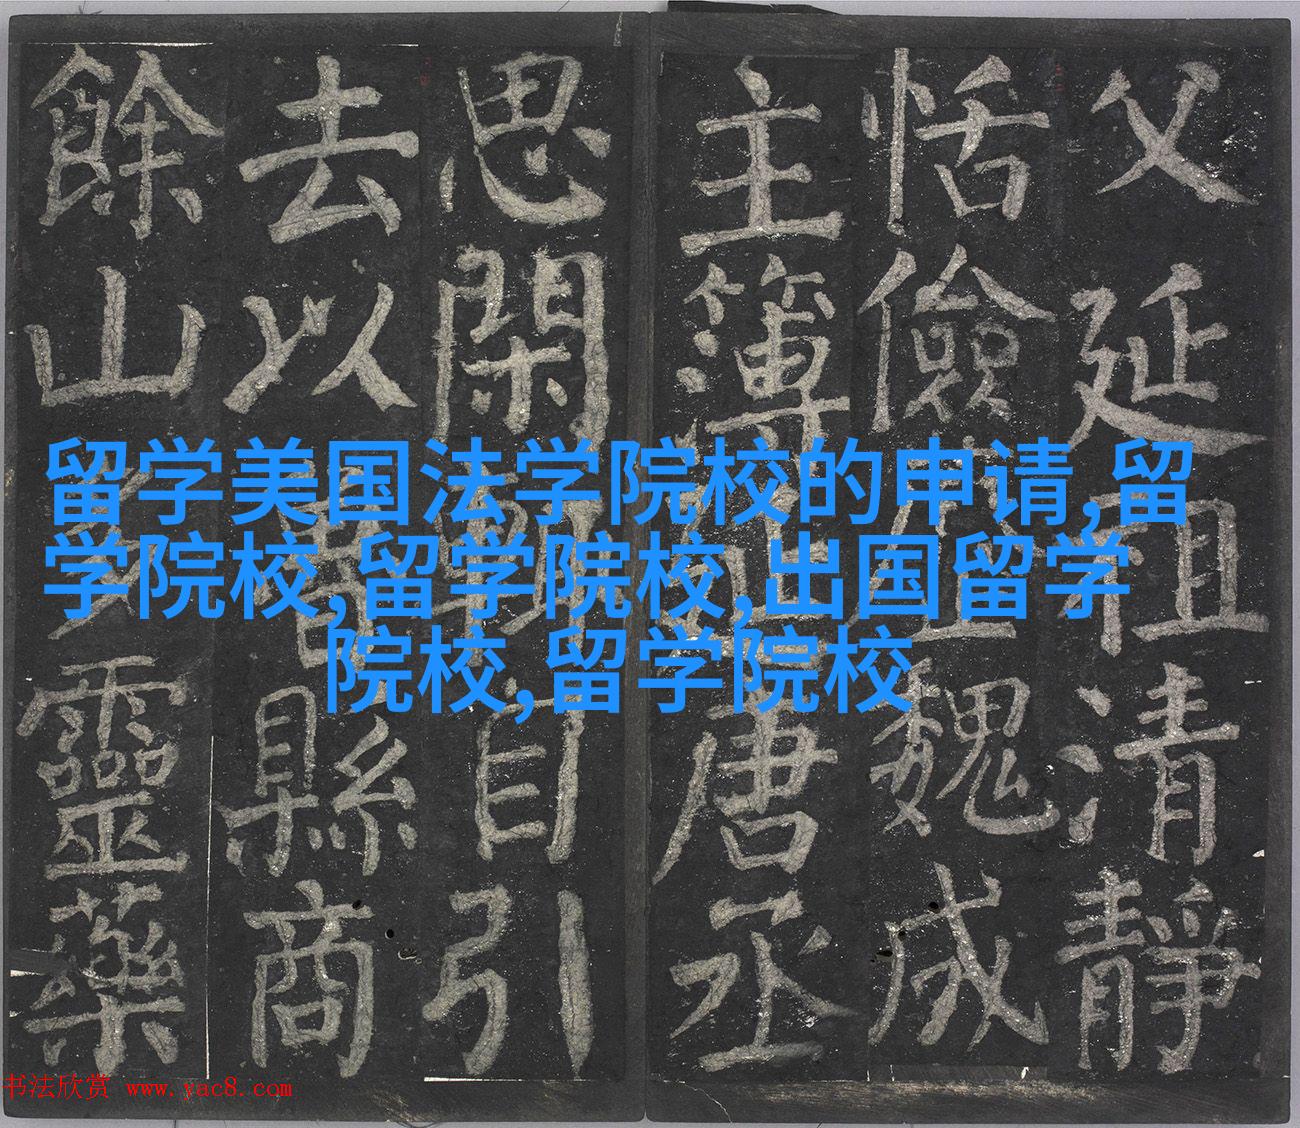 父延祖清靜
恬儉魏成
主簿唐丞
思閑自引
去以魯縣商
餘山多靈藥
留学美国法学院校的申请,留
学院校,留学院校,出国留学
院校,留学院校
书法欣赏 www.yac8.com